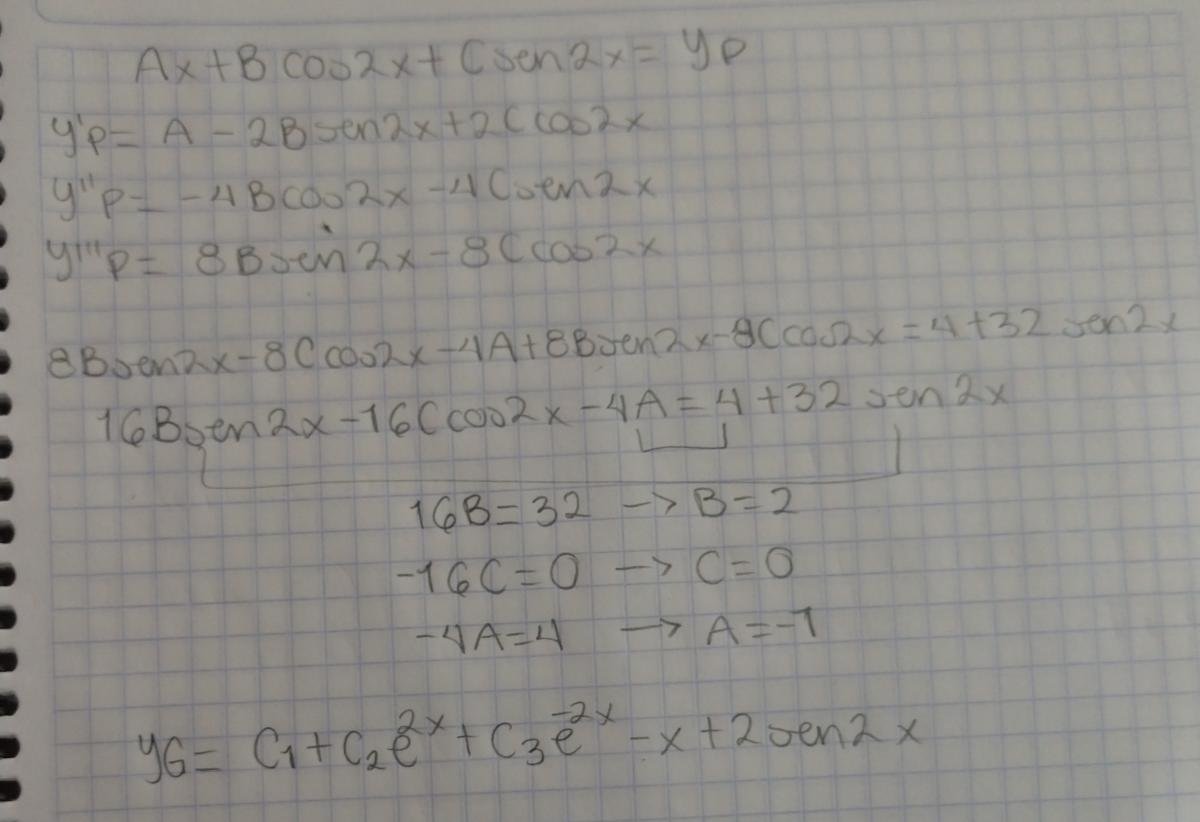 Ax+Bcos2x+Csen2x= yp
y'p= A - 2Bsen2x+2Ccos2x
y''p= -4Bcos2x -4Csen2x
y'''p= 8Bsen2x-8Ccos2x
8Bsen2x-8Ccos2x-4A+8Bsen2x-8Ccos2x=4+32 sen2x
16Bsen2x-16Ccos2x-4A=4+32 sen2x
16B=32 -> B=2
-16C=0 -> C=0
-4A=4 -> A=-1
yG= C₁+C₂e²ˣ+C₃e⁻²ˣ-x+2sen2x